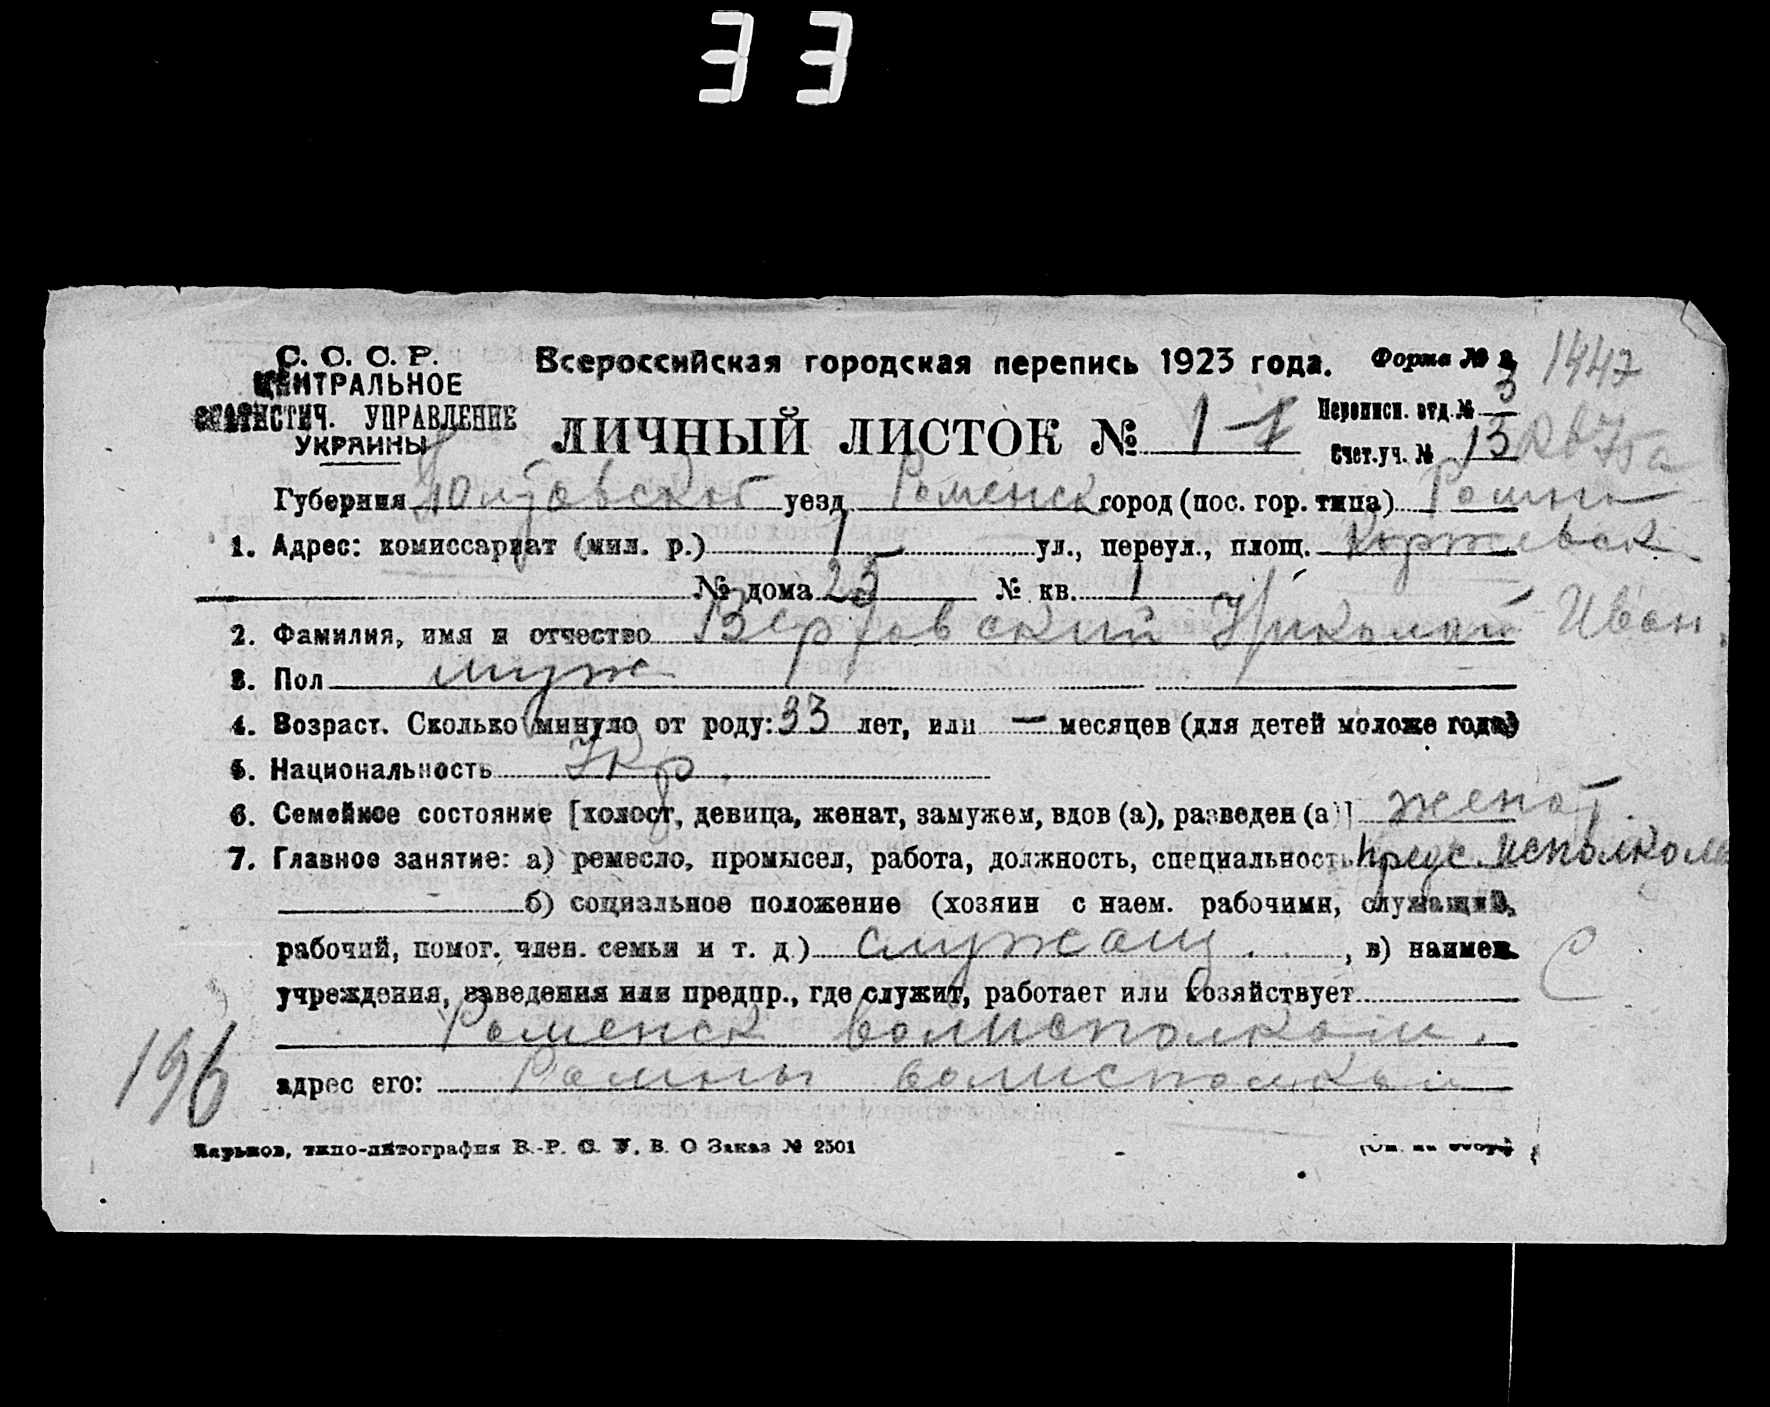 33
С. С. С. Р.
ЦЕНТРАЛЬНОЕ
СТАТИСТИЧ. УПРАВЛЕНИЕ
УКРАИНЫ
Всероссийская городская перепись 1923 года.
Форма № 3
1447
ЛИЧНЫЙ ЛИСТОК № 1-1
Переписн. отд. №
Счет. уч. № 13
Губерния Полтавской уезд Роменск город (пос. гор. типа) Ромны
1. Адрес: комиссариат (мил. р.) 1 ул., переул., площ. Коржевск
№ дома 25 № кв. 1
2. Фамилия, имя и отчество Николай Иван.
3. Пол муж
4. Возраст. Сколько минуло от роду: 33 лет, или — месяцев (для детей моложе года)
5. Национальность Укр.
6. Семейное состояние [холост, девица, женат, замужем, вдов (а), разведен (а)] женат.
7. Главное занятие: а) ремесло, промысел, работа, должность, специальность предс. исполком
б) социальное положение (хозяин с наем. рабочими, служащий,
рабочий, помог. член. семьи и т. д.) служащ. , в) наимен.
С
учреждения, заведения или предпр., где служит, работает или хозяйствует
Роменск волисполком.
196
адрес его: Ромны волисполком
Харьков, типо-литография В.-Р. С. У. В. О Заказ № 2501